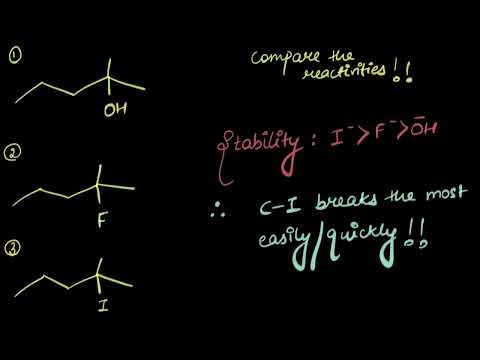 ①
OH
②
F
③
I
Compare the
reactivities!!
Stability: I⁻>F⁻>ŌH
∴ C-I breaks the most
easily/quickly!!